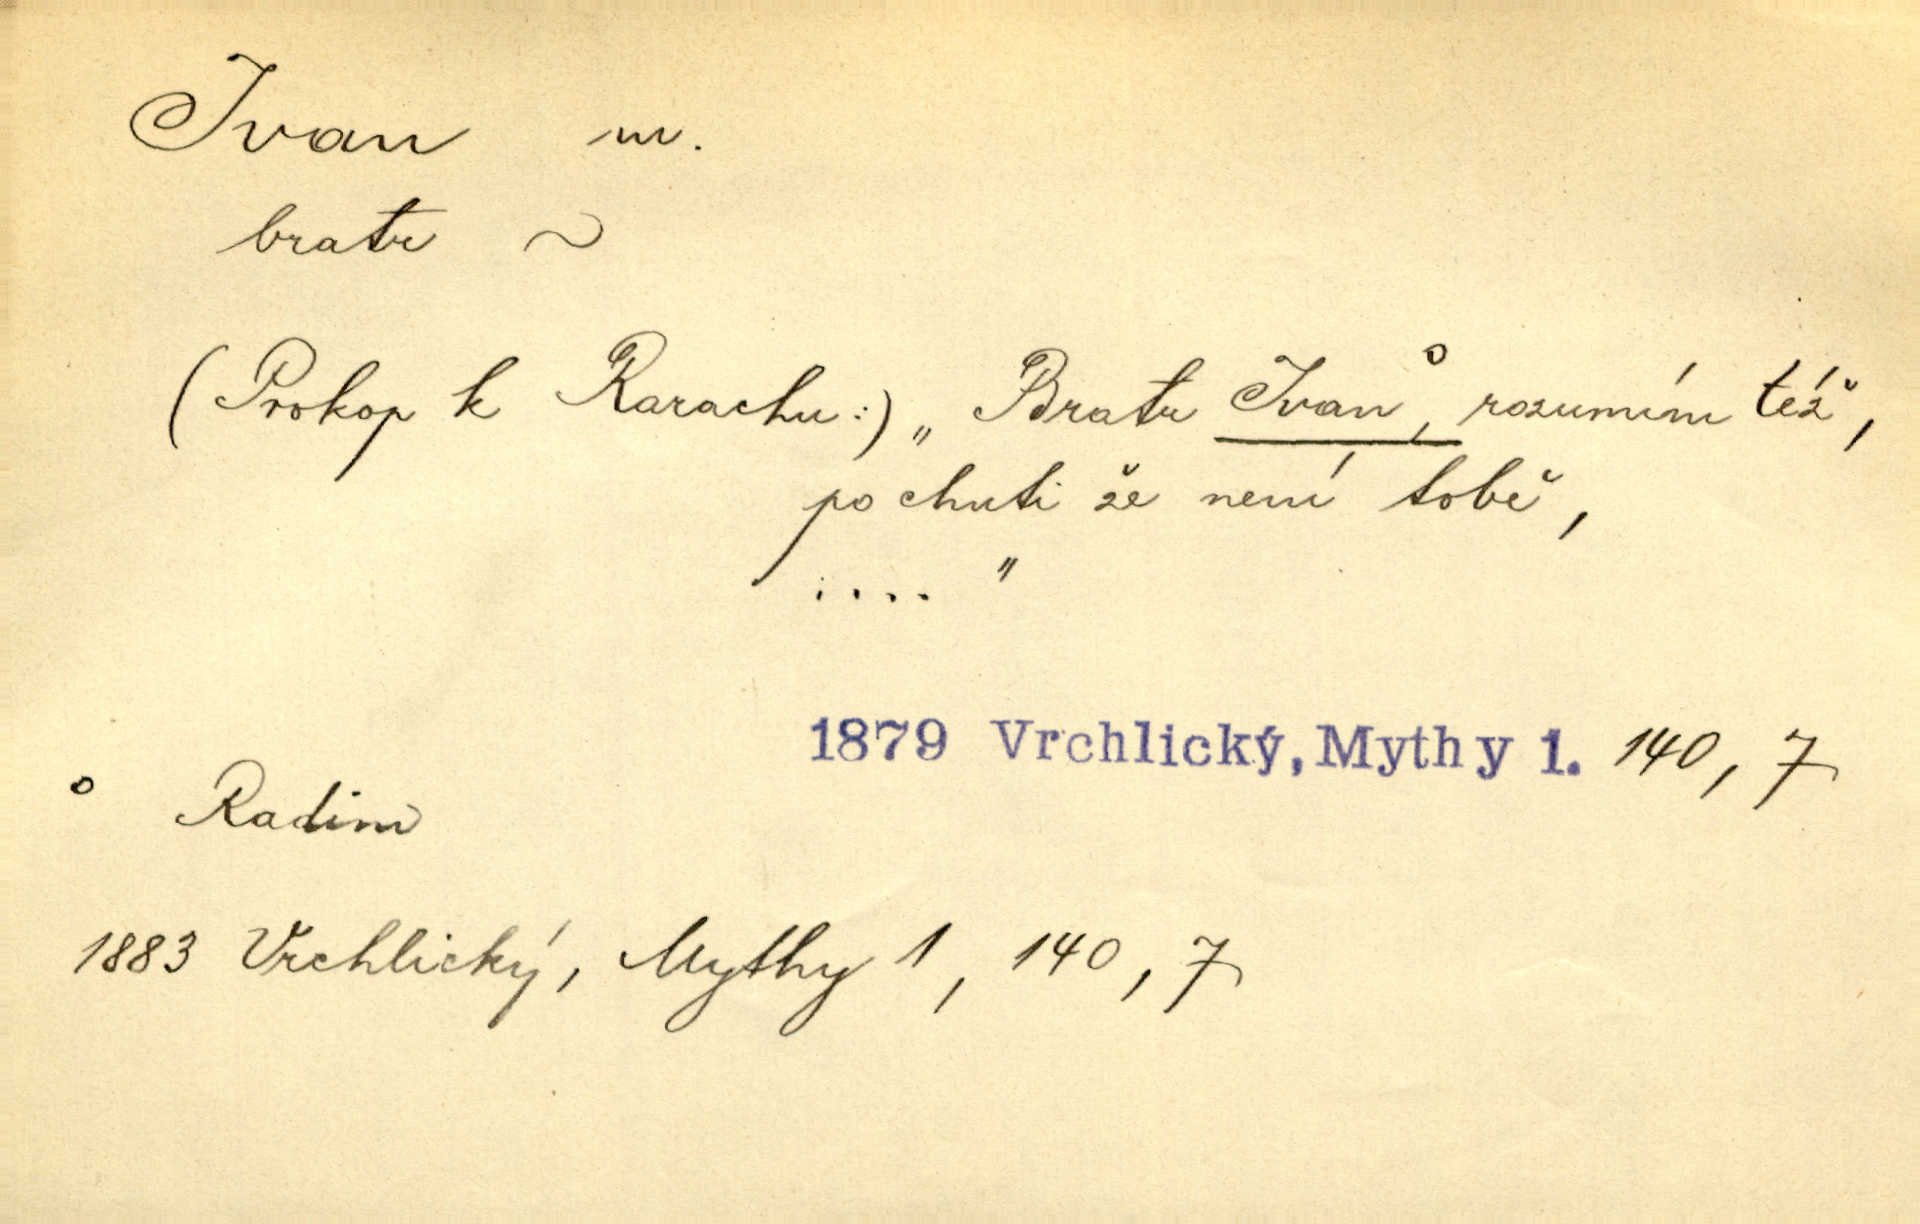 Ivan m.
bratr ~
(Prokop k Rarachu:) „Bratr Ivan°, rozumím též,
po chuti že není tobě,
...."
1879 Vrchlický, Mythy 1. 140, 7
° Radim
1883 Vrchlický, Mythy 1, 140, 7